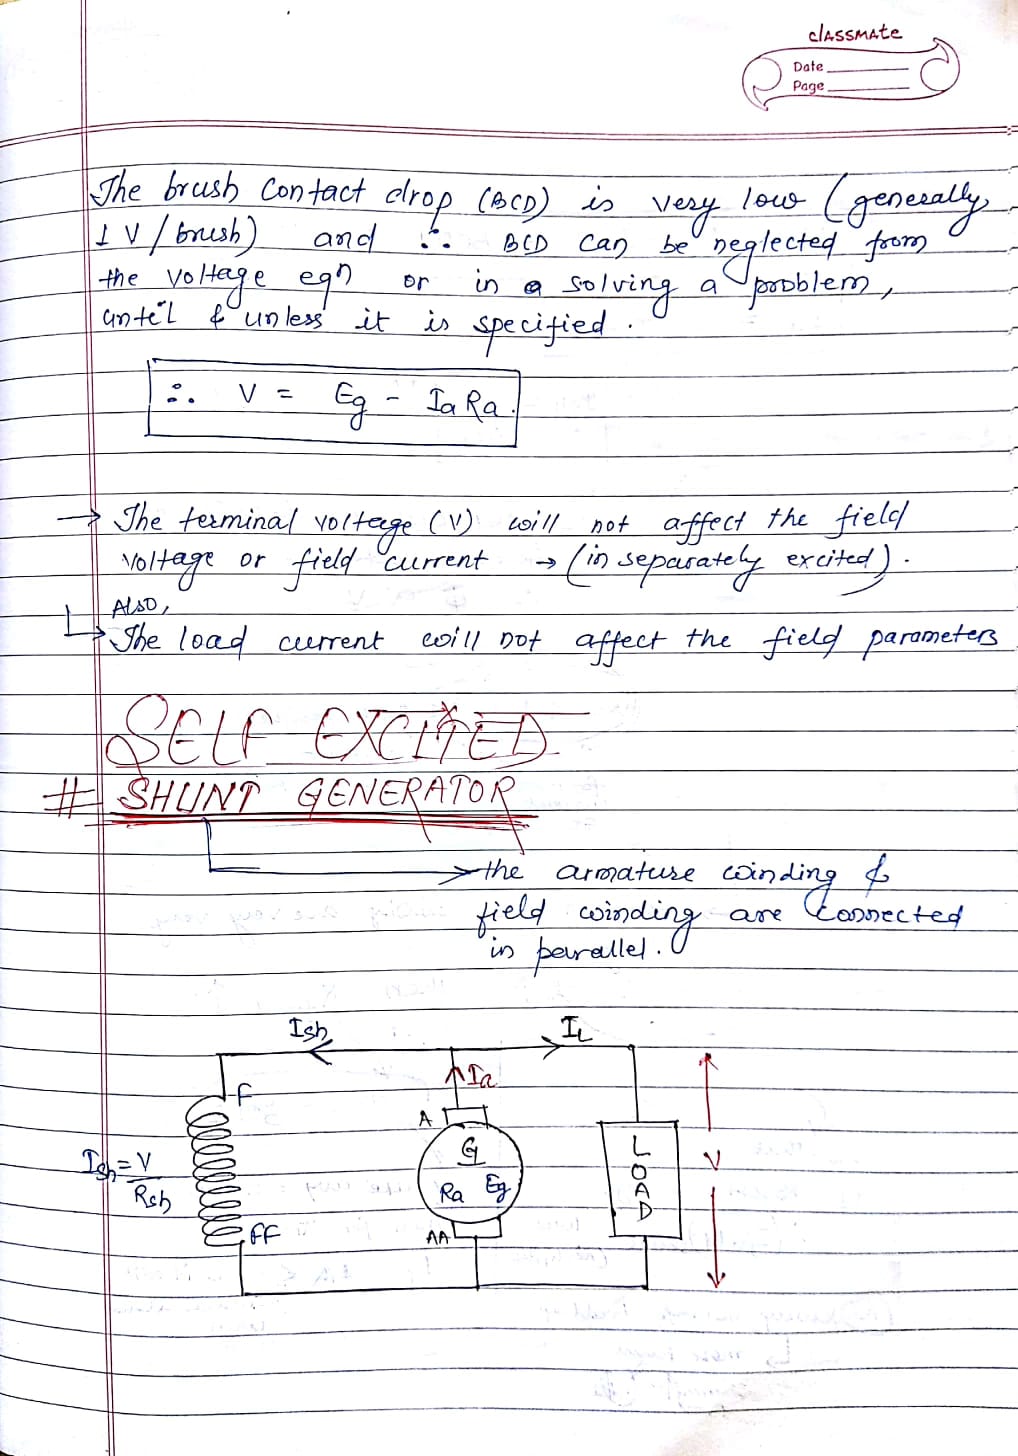 classmate
Date
Page
The brush contact drop (BCD) is very low (generally
1 V / brush) and ∴ BCD can be neglected from
the voltage eqn or in a solving a problem,
until & unless it is specified.
∴ V = Eg - IaRa.
→ The terminal voltage (V) will not affect the field
voltage or field current → (in separately excited).
ALSO,
→ The load current will not affect the field parameters
SELF EXCITED
# SHUNT GENERATOR
→ the armature winding &
field winding are connected
in parallel.
Ish IL
Ia
F
A
G
Ra Eg
AA
FF
Ish = V
Rsh
LOAD
V